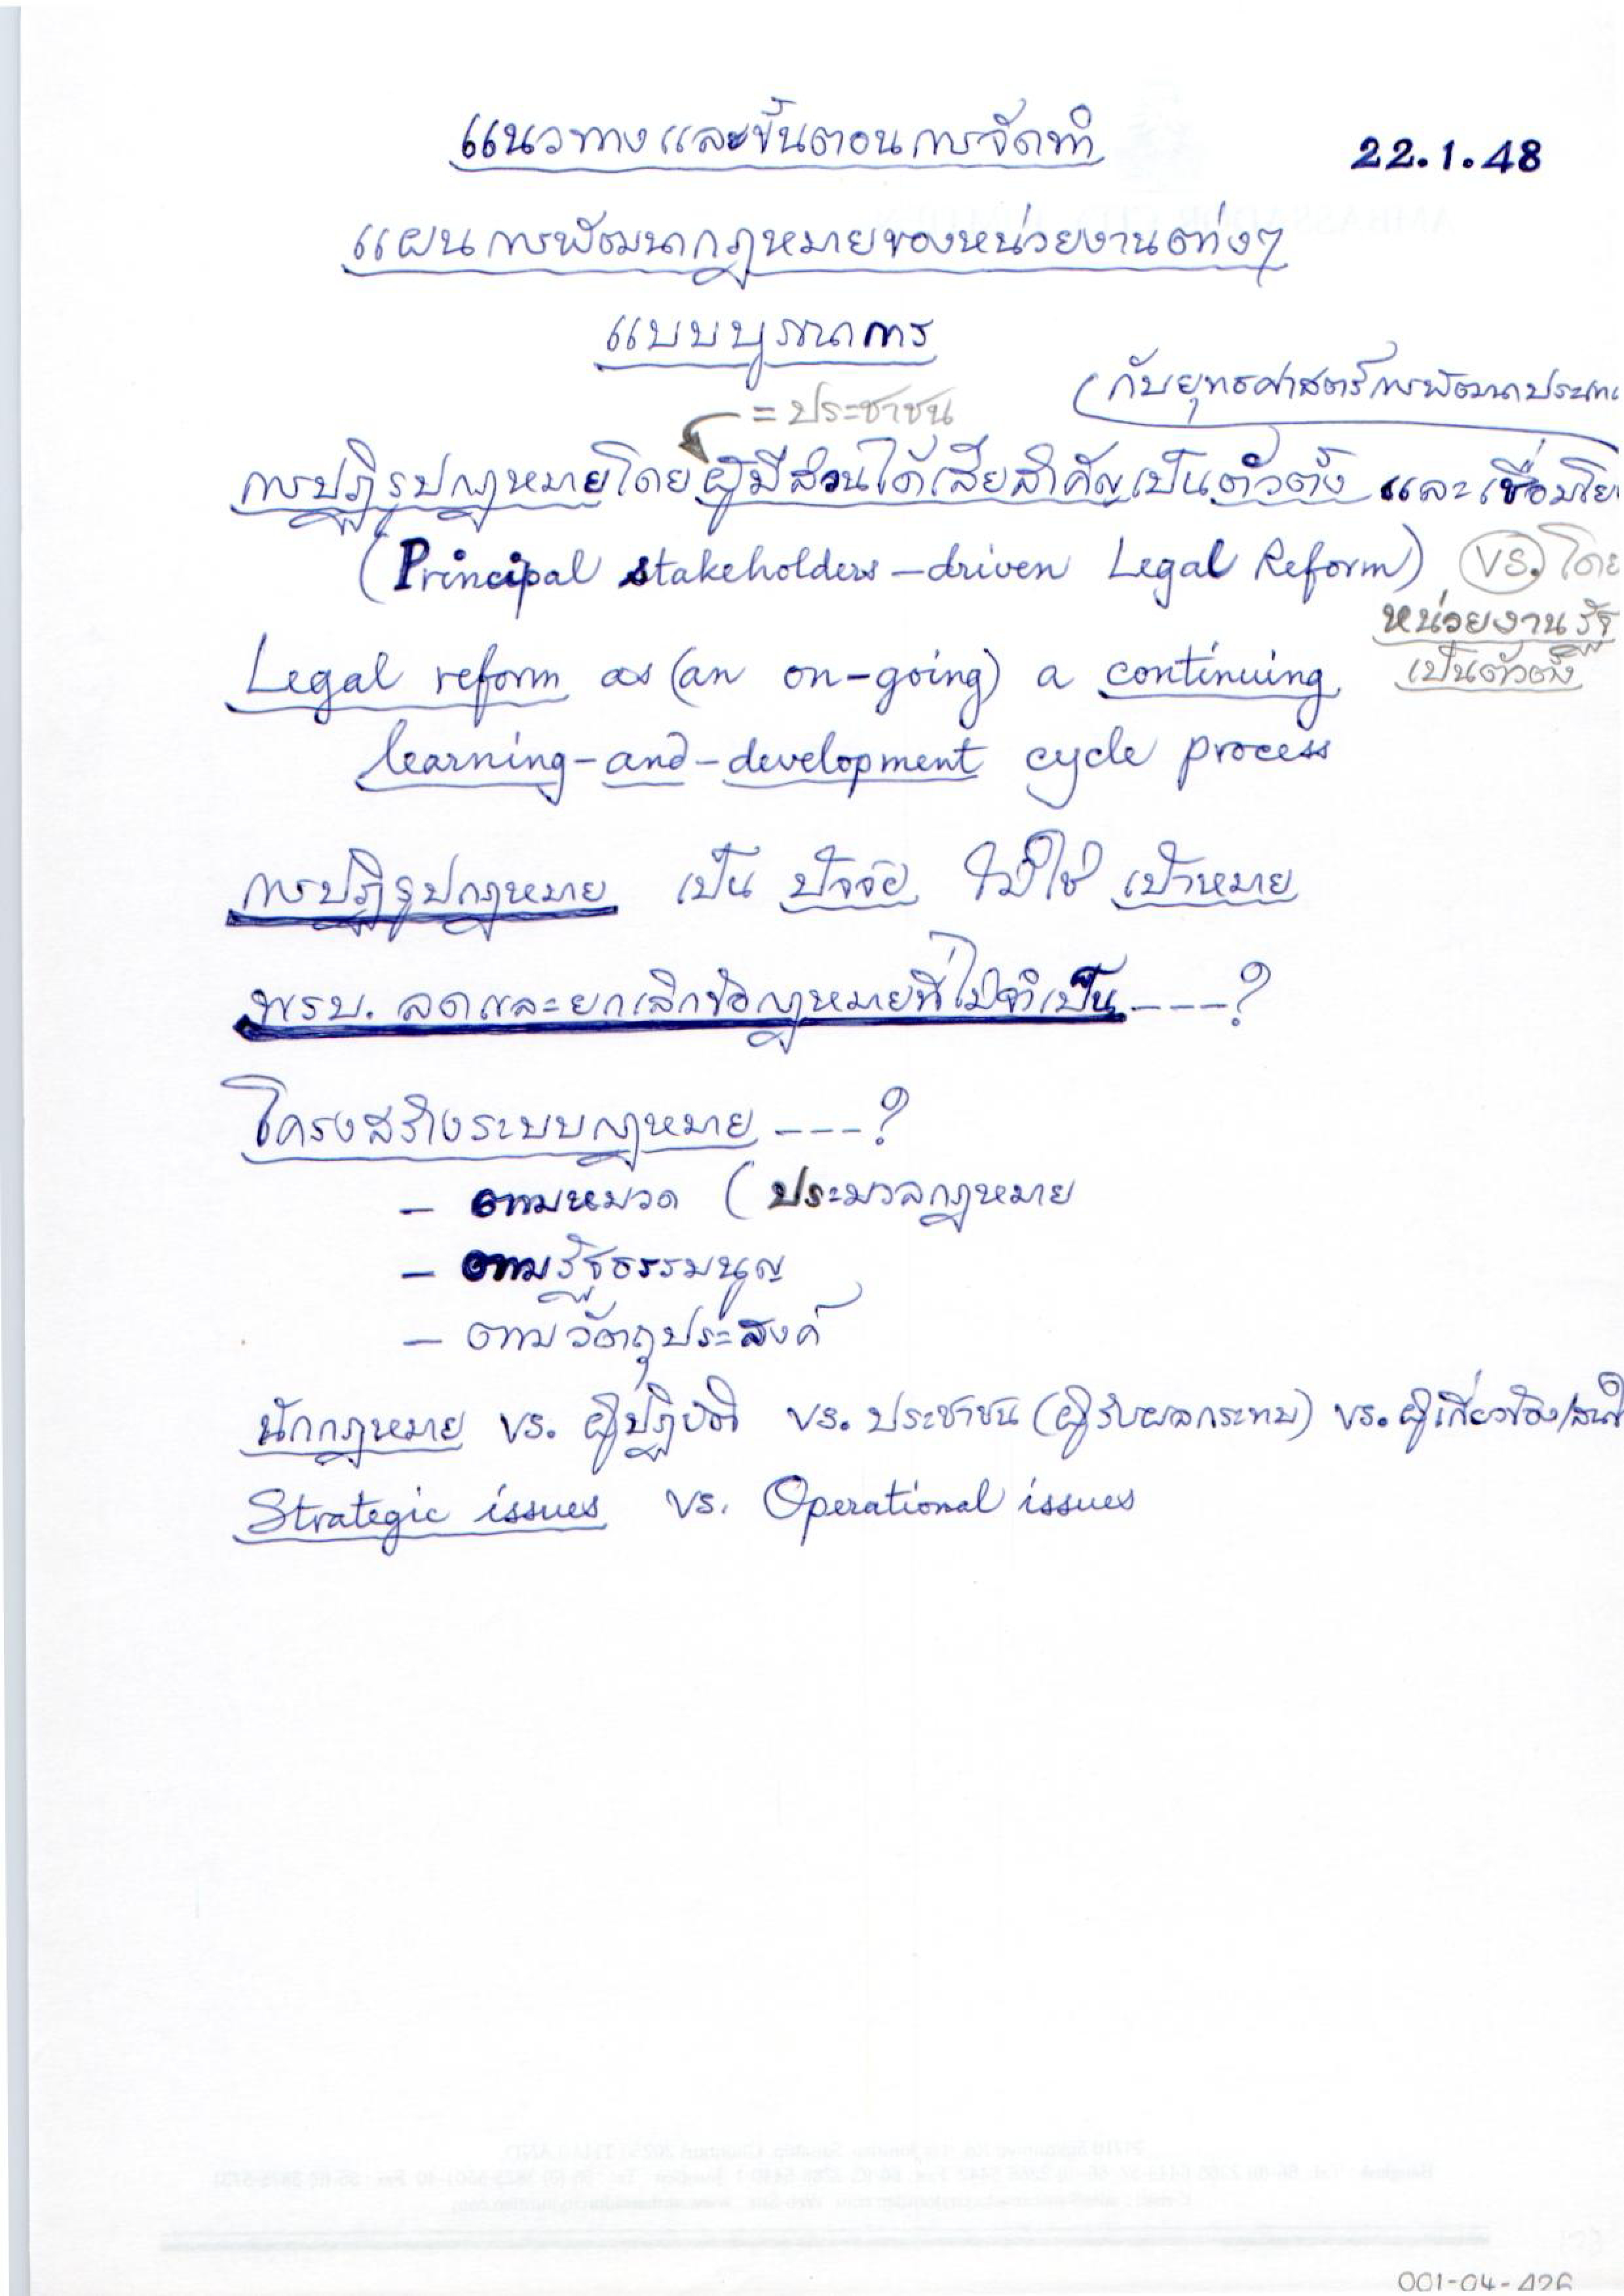 แนวทางและขั้นตอนการจัดทำ
22.1.48
แผนการพัฒนากฎหมายของหน่วยงานต่างๆ
แบบบูรณาการ
(กับยุทธศาสตร์การพัฒนาประเท
= ประชาชน
การปฏิรูปกฎหมายโดยผู้มีส่วนได้เสียสำคัญเป็นตัวตั้ง และเชื่อมโย
(Principal stakeholders-driven Legal Reform) vs. โดย
หน่วยงานรัฐ
เป็นตัวตั้ง
Legal reform as (an on-going) a continuing
learning-and-development cycle process
การปฏิรูปกฎหมาย เป็น ปัจจัย ไม่ใช่ เป้าหมาย
พรบ. ลดและยกเลิกข้อกฎหมายที่ไม่จำเป็น ----?
โครงสร้างระบบกฎหมาย ---?
- ตามหมวด (ประมวลกฎหมาย
- ตามรัฐธรรมนูญ
- ตามวัตถุประสงค์
นักกฎหมาย vs. ผู้ปฏิบัติ vs. ประชาชน (ผู้รับผลกระทบ) vs. ผู้เกี่ยวข้อง/สนใ
Strategic issues vs. Operational issues
001-04-426